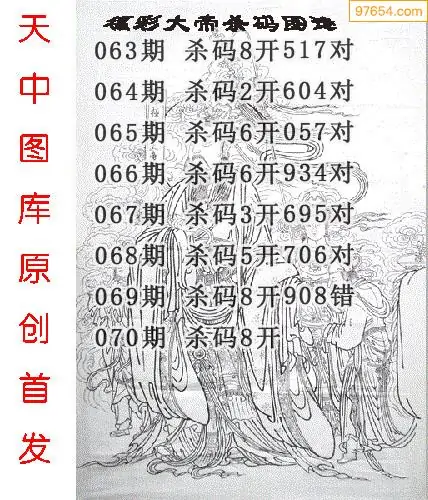 97654.com
福彩大帝杀码图谜
063期 杀码8开517对
064期 杀码2开604对
065期 杀码6开057对
066期 杀码6开934对
067期 杀码3开695对
068期 杀码5开706对
069期 杀码8开908错
070期 杀码8开
天中图库原创首发